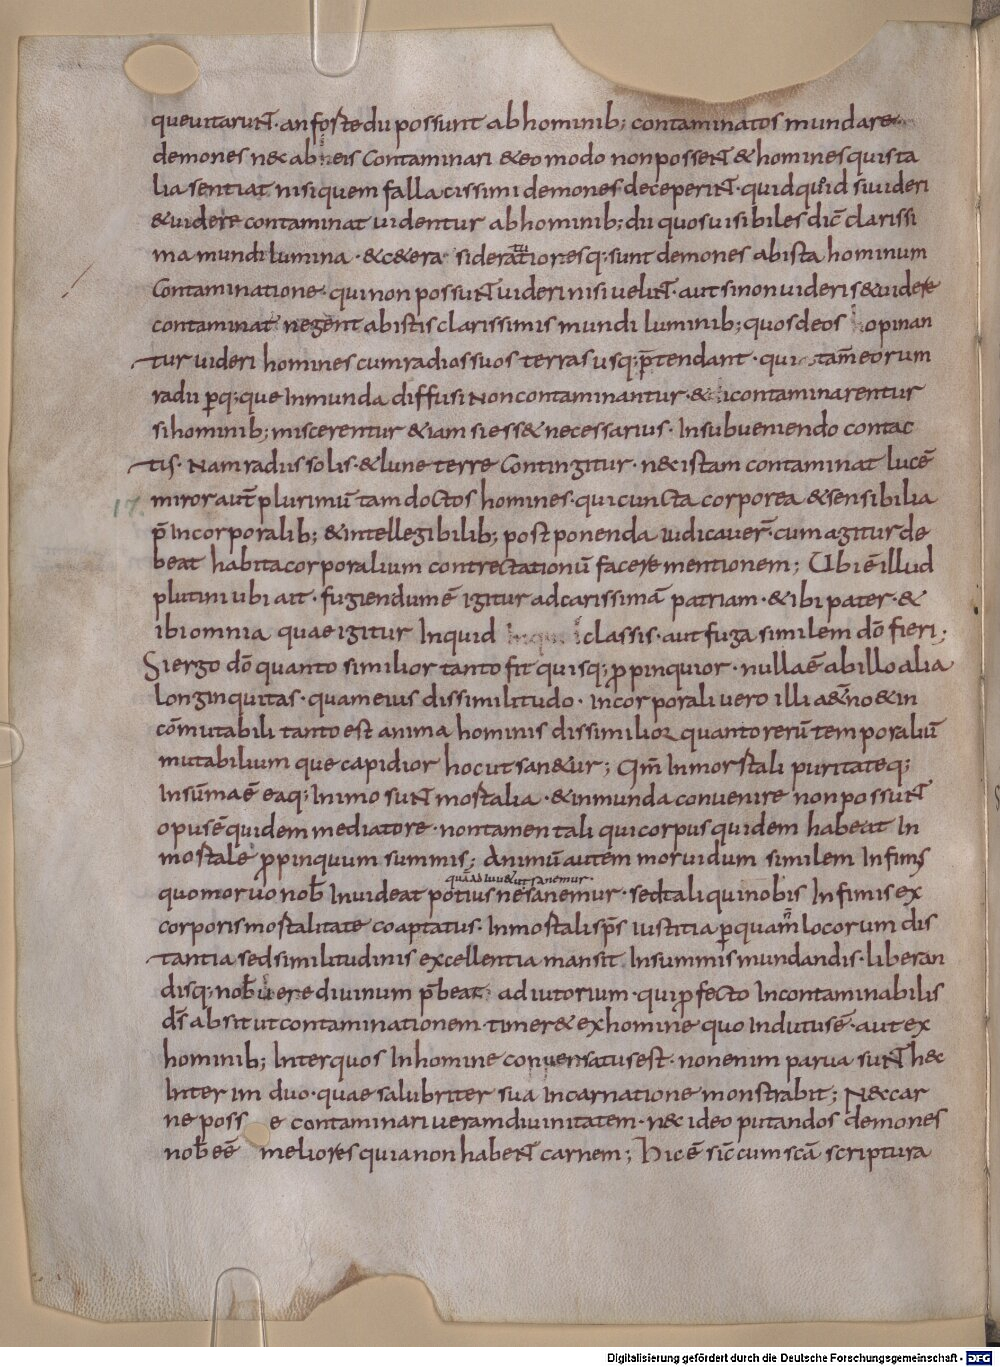 que vitarunt · an foste dii possunt ab hominib; contaminatos mundare
demones nec ab eis contaminari & eo modo non possent & homines qui sta
lia sentiat nisi quem fallacissimi demones deceperint · quid quod si videri
& videre contaminat videntur ab hominib; dii quos visibiles dic̄ clarissi
ma mundi lumina · & c&era sidera tutioresq; sunt demones ab ista hominum
contaminatione · qui non possunt videri nisi velint · aut si non videri s& videre
contaminat negent ab istis clarissimis mundi luminib; quos deos opinan
tur videri homines cum radios suos terras usq; p̄tendant · qui tam̄ eorum
radii p̱ q;que inmunda diffusi non contaminantur · & dii contaminarentur
si hominib; miscerentur &iam si ess& necessarius · in subveniendo contac
tis · Nam radiis solis · & lune terre contingitur · nec istam contaminat lucē
17.
miror aut̄ plurimū tam doctos homines · qui cuncta corporea & sensibilia
p̄ incorporalib; & intellegibilib; postponenda iudicaver̄ · cum agitur de
beat habita corporalium contrectationū facere mentionem; Ubi ē illud
plutini ubi ait · fugiendum ē igitur ad carissimā patriam · & ibi pater · &
ibi omnia quae igitur inquid classis · aut fuga similem dō fieri;
Si ergo dō quanto similior tanto fit quisq; p̱pinquior · nulla ē ab illo alia
longinquitas · quam eius dissimilitudo · incorporali vero illi a&̄no & in
cōmutabili tanto est anima hominis dissimilior quanto rerū temporaliū
mutabilium que capidior hoc ut san&ur; Qm̄ inmortali puritateq;
in sūma ē eaq; in imo sunt mostalia · & inmunda convenire non possunt
opus ē quidem mediatore · non tamen tali qui corpus quidem habeat in
mostale p̱pinquum summis; Animū autem morvidum similem infimis
quā adiuu& ut sanemur ·
quo morvo nob̄ invideat potius ne sanemur · sed tali qui nobis infimis ex
corporis mostalitate coaptatus · Inmostali sp̄s iustitia p̱ quam n̄ locorum dis
tantia sed similitudinis excellentia mansit in summis mundandis · liberan
disq; nob̄ vere divinum p̄beat adiutorium · qui p̱fecto incontaminabilis
ds̄ absit ut contaminationem timer& ex homine quo indutus ē · aut ex
hominib; inter quos in homine conversatus est · non enim parva sunt hec
interim duo · quae salubriter sua incarnatione monstrabit; Nec car
ne posse contaminari veram divinitatem · nec ideo putandos demones
nob̄ eē meliores quia non habent carnem; Hic ē sic̄ cum scā scriptura
Digitalisierung gefördert durch die Deutsche Forschungsgemeinschaft - DFG